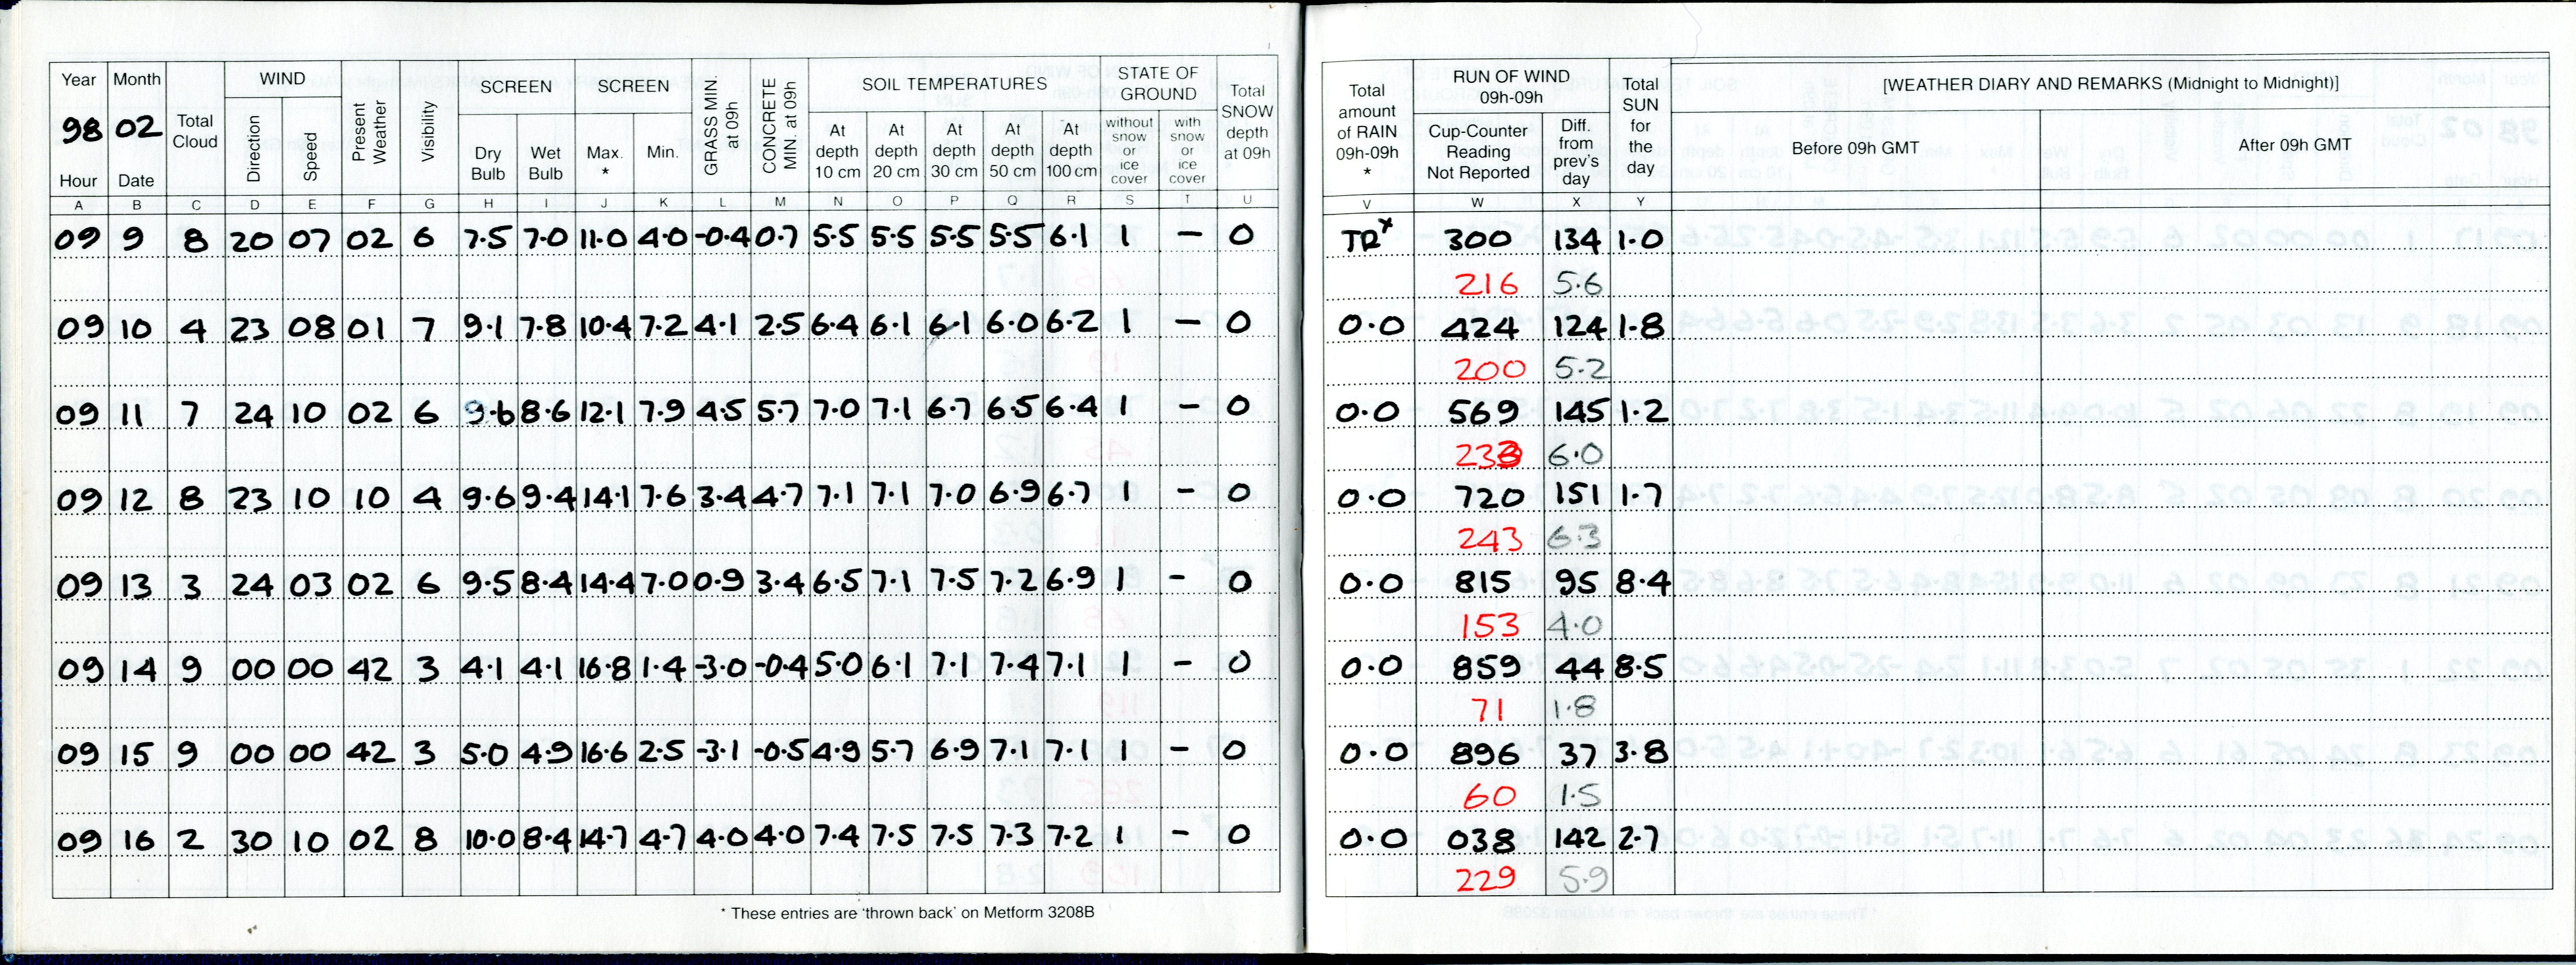 Year Month WIND SCREEN SCREEN SOIL TEMPERATURES STATE OF GROUND
98 02 Total Cloud Direction Speed Present Weather Visibility Dry Bulb Wet Bulb Max. * Min. GRASS MIN at 09h CONCRETE MIN. at 09h At depth 10 cm At depth 20 cm At depth 30 cm At depth 50 cm At depth 100 cm without snow or ice cover with snow or ice cover Total SNOW depth at 09h
Hour Date
A B C D E F G H I J K L M N O P Q R S T U
09 9 8 20 07 02 6 7.5 7.0 11.0 4.0 -0.4 0.7 5.5 5.5 5.5 5.5 6.1 1 – 0
09 10 4 23 08 01 7 9.1 7.8 10.4 7.2 4.1 2.5 6.4 6.1 6.1 6.0 6.2 1 – 0
09 11 7 24 10 02 6 9.6 8.6 12.1 7.9 4.5 5.7 7.0 7.1 6.7 6.5 6.4 1 – 0
09 12 8 23 10 10 4 9.6 9.4 14.1 7.6 3.4 4.7 7.1 7.1 7.0 6.9 6.7 1 – 0
09 13 3 24 03 02 6 9.5 8.4 14.4 7.0 0.9 3.4 6.5 7.1 7.5 7.2 6.9 1 – 0
09 14 9 00 00 42 3 4.1 4.1 16.8 1.4 -3.0 -0.4 5.0 6.1 7.1 7.4 7.1 1 – 0
09 15 9 00 00 42 3 5.0 4.9 16.6 2.5 -3.1 -0.5 4.9 5.7 6.9 7.1 7.1 1 – 0
09 16 2 30 10 02 8 10.0 8.4 14.7 4.7 4.0 4.0 7.4 7.5 7.5 7.3 7.2 1 – 0
* These entries are 'thrown back' on Metform 3208B
Total amount of RAIN 09h-09h * RUN OF WIND 09h-09h Total SUN for the day [WEATHER DIARY AND REMARKS (Midnight to Midnight)]
Cup-Counter Reading Not Reported Diff. from prev's day Before 09h GMT After 09h GMT
V W X Y
TR* 300 134 1.0
216 5.6
0.0 424 124 1.8
200 5.2
0.0 569 145 1.2
233 6.0
0.0 720 151 1.7
243 6.3
0.0 815 95 8.4
153 4.0
0.0 859 44 8.5
71 1.8
0.0 896 37 3.8
60 1.5
0.0 038 142 2.7
229 5.9